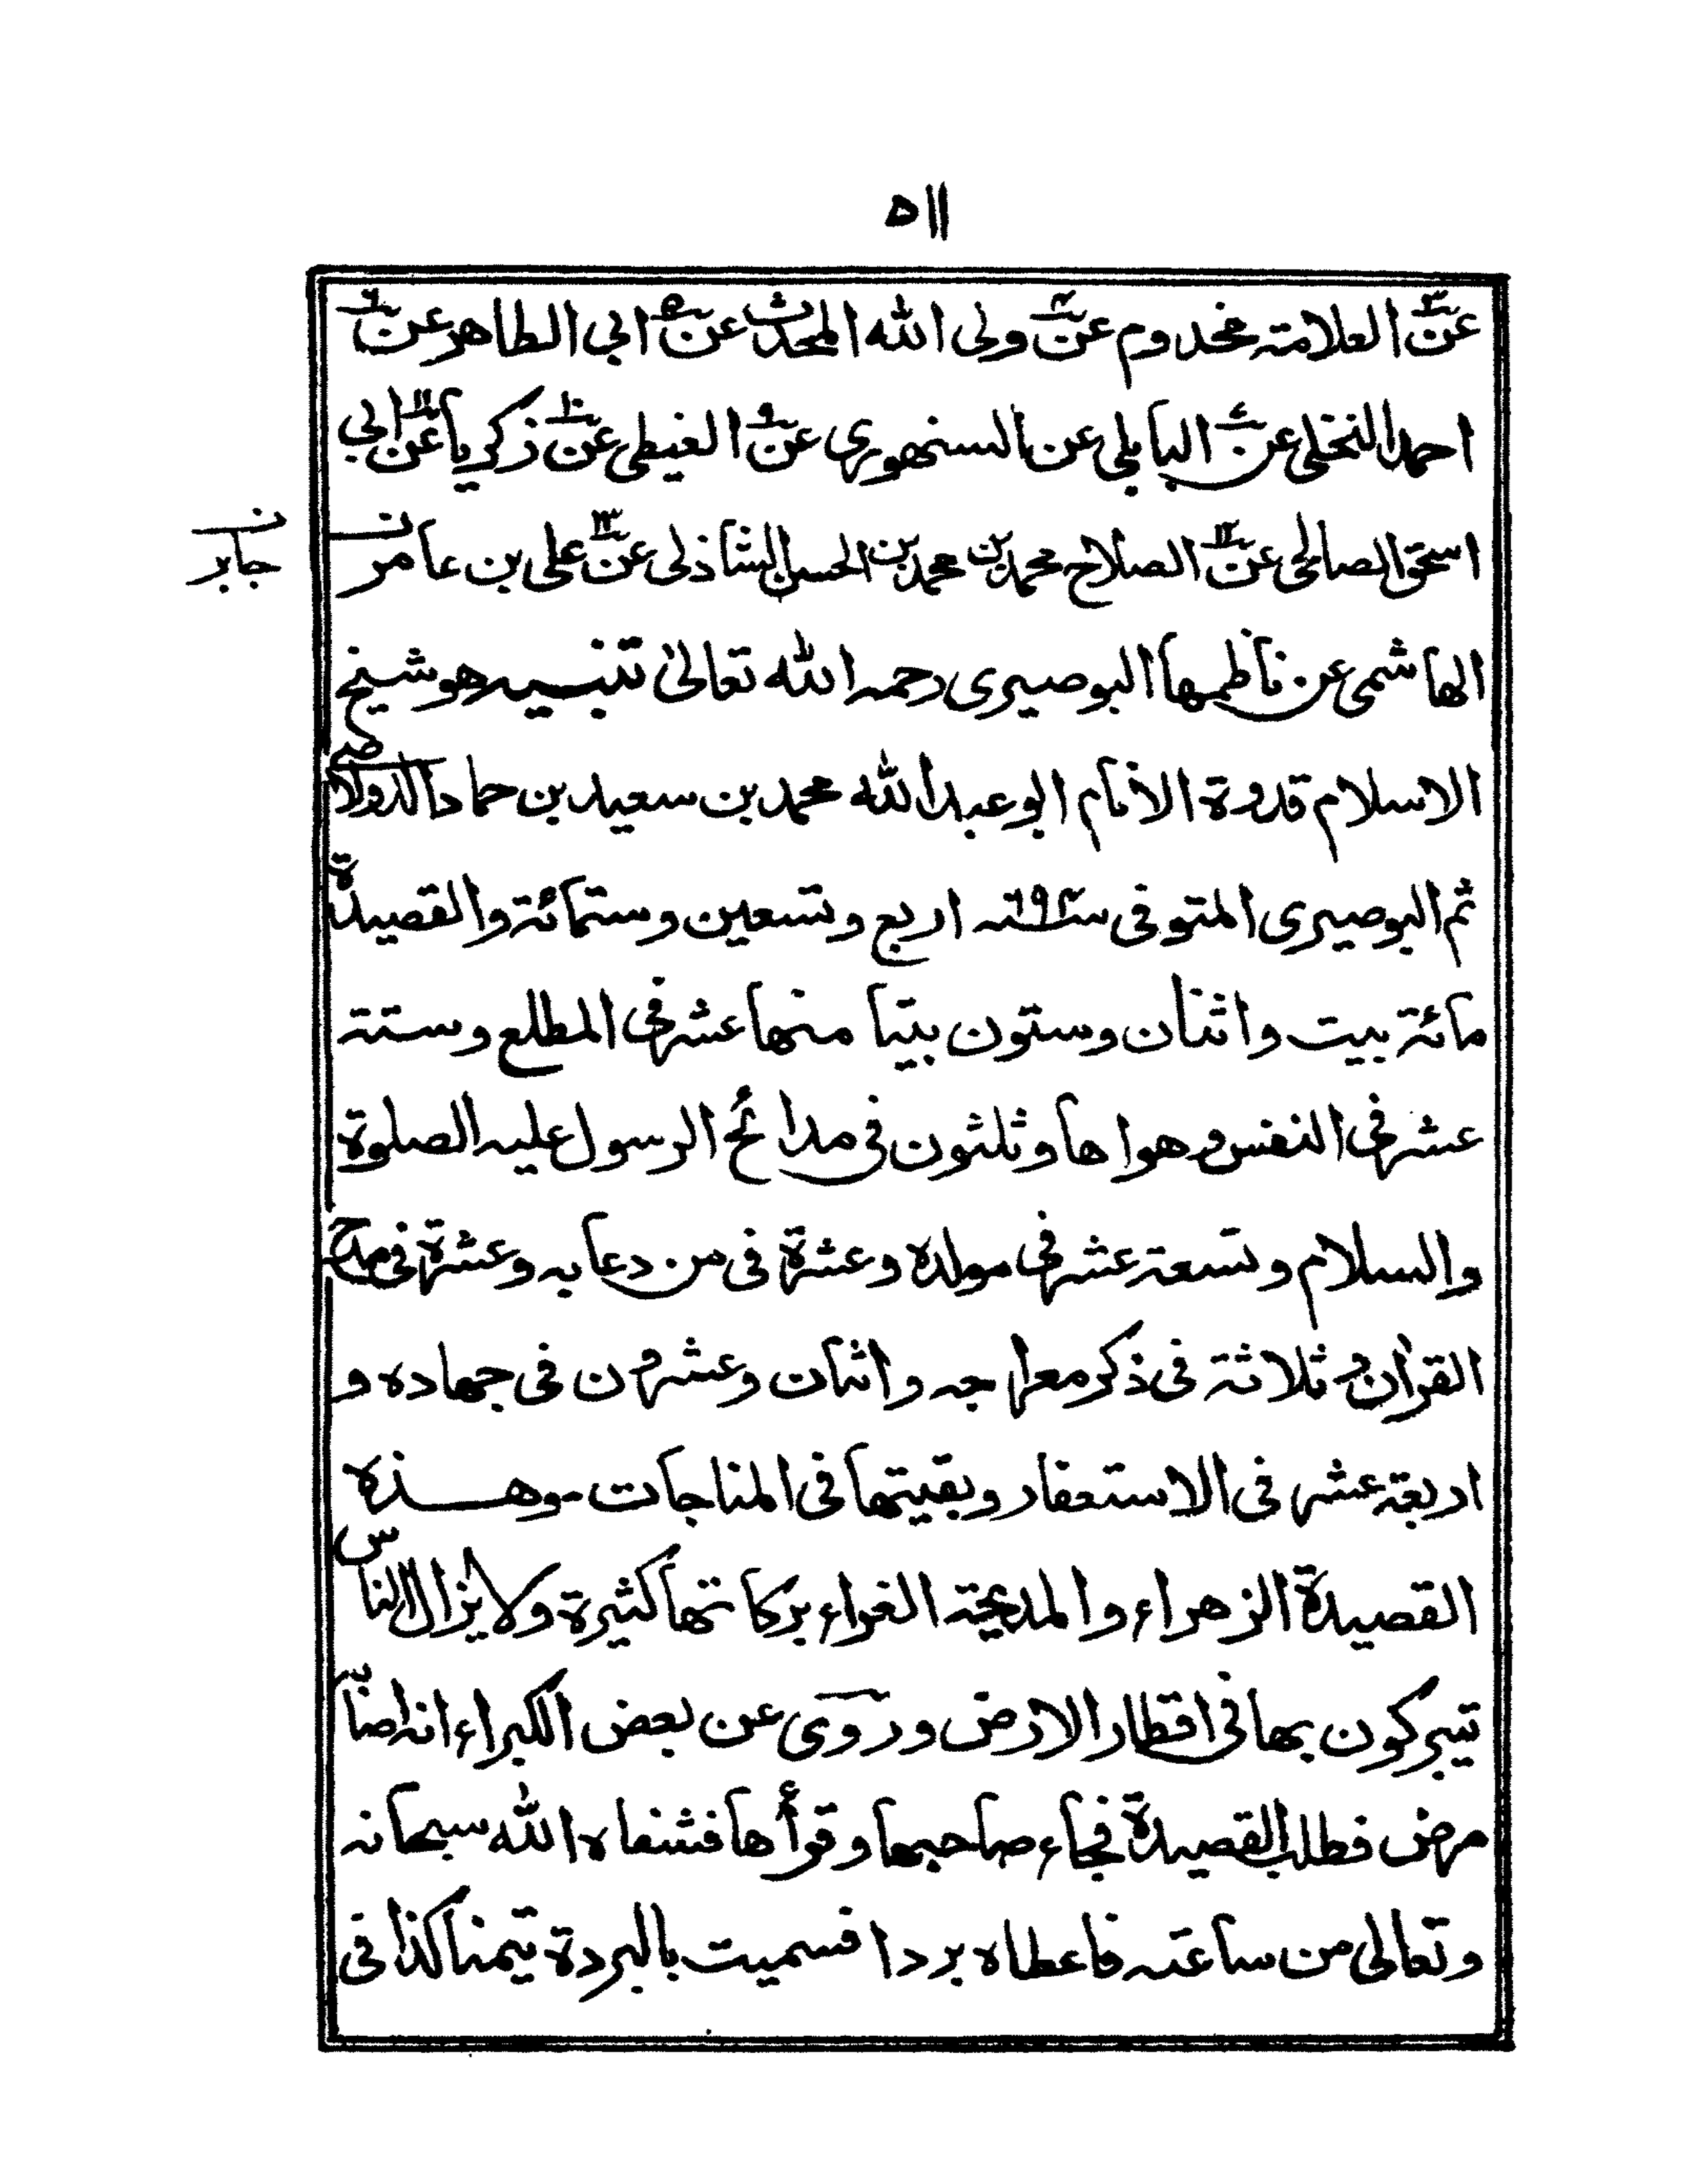 ٥١١
عن٣ العلامة مخدوم عن٤ ولى الله المحدث عن٥ ابي الطاهر عن٦
احمد النخلى عن٧ البابلى عن السنهورى عن٩ الغيطى عن١٠ زكريا عن١١ ابي
اسحق الصالحى عن١٢ الصلاح محمد بن محمد بن الحسن الشاذلى عن١٣ على بن عامر ن
ن جابر
الهاشمى عن ناظمها البوصيرى رحمه الله تعالىٰ تنبيه هو شيخ
الاسلام قدوة الانام ابو عبد الله محمد بن سعيد بن حماد الدولاصى
ثم البوصيرى المتوفى سنة ٦٩٤ اربع وتسعين وستمائة والقصيدة
مائة بيت واثنان وستون بيتا منها عشر فى المطلع وستة
عشر فى النفس وهواها وثلثون فى مدائح الرسول عليه الصلوة
والسلام وتسعة عشر فى مولده وعشرة فى من دعا به وعشرة فى مدح
القرأن وثلاثة فى ذكر معراجه واثنان وعشرون فى جهاده و
اربعة عشر فى الاستغفار وبقيتها فى المناجات - وهذه
القصيدة الزهراء والمديحة الغراء بركاتها كثيرة ولا يزال الناس
تيبركون بها فى اقطار الارض وروى عن بعض الكبراء انه اصابه
مرض فطلب القصيدة فجاء صاحبها وقرأها فشفاه الله سبحانه
وتعالى من ساعته فاعطاه بردا فسميت بالبردة تيمنا كذا فى